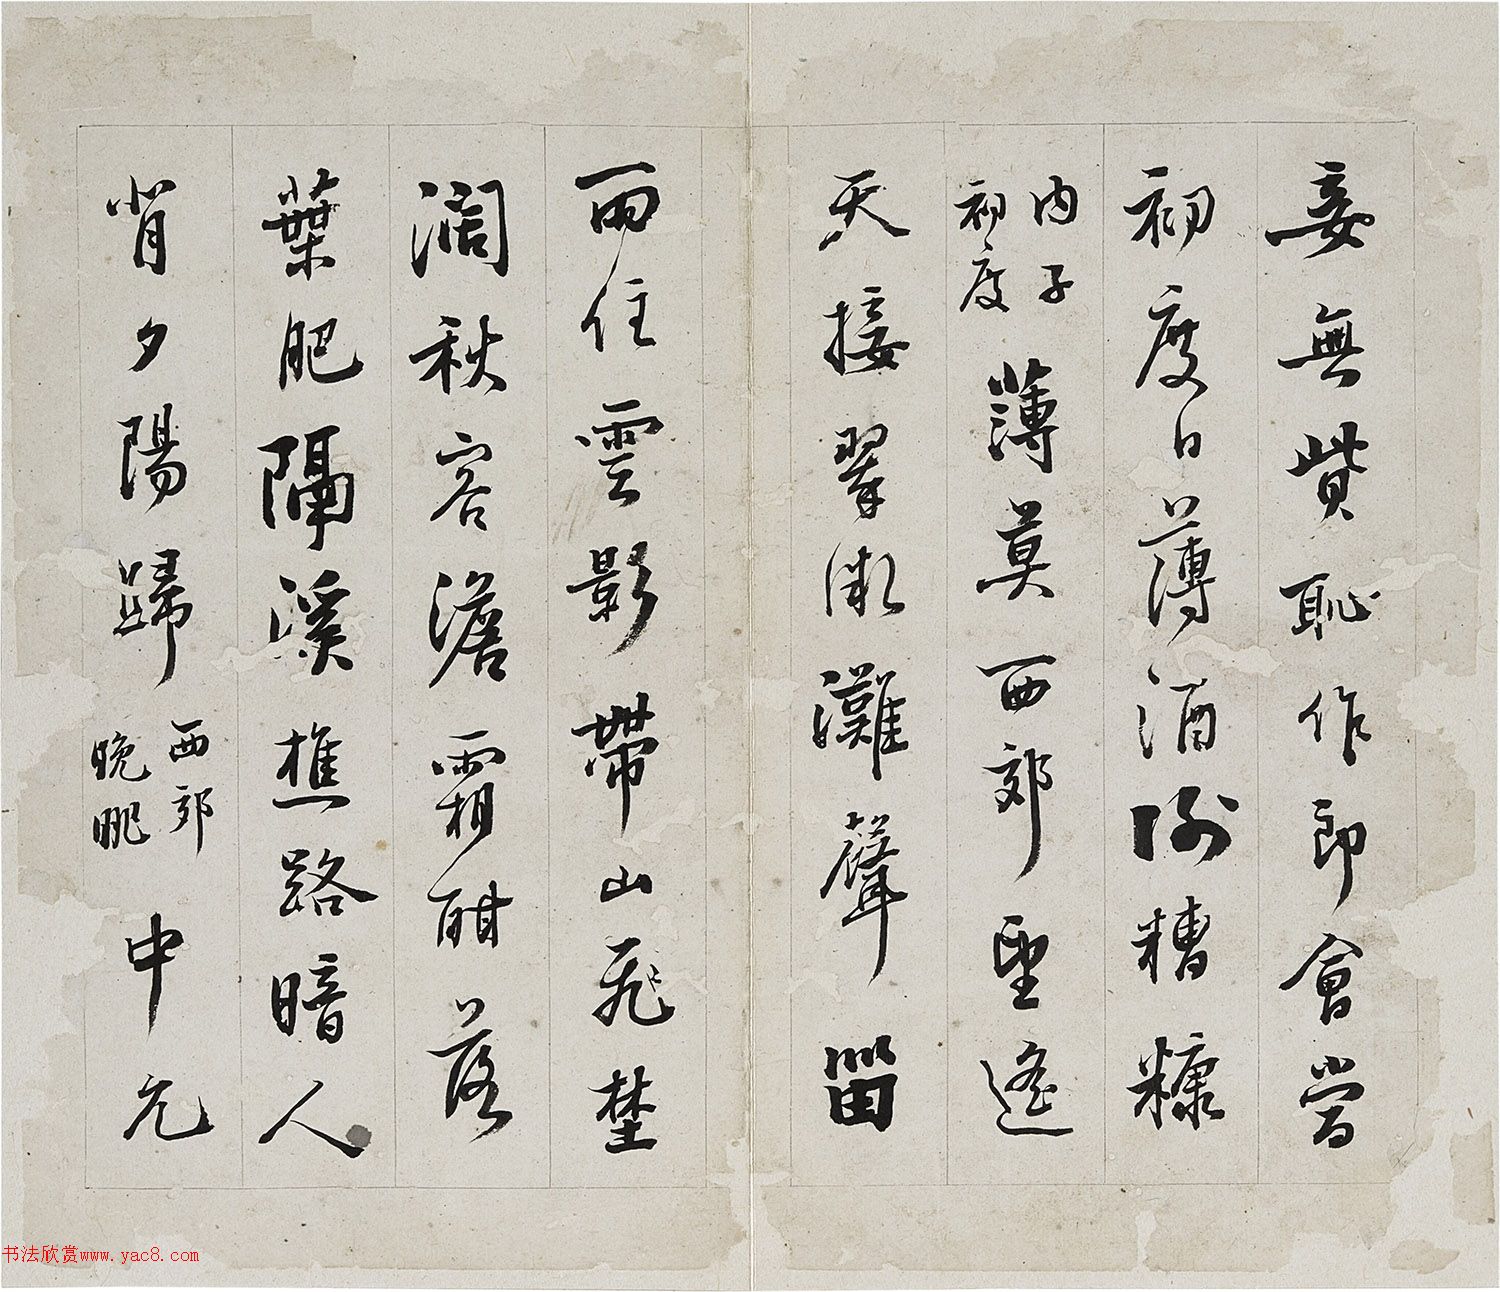 妾無貲恥作郎會當
初度日薄酒例糟糠
内子初度 薄莫西郊望遙
天接翠微灘聲畱
雨住雲影帶山飛埜
濶秋容澹霜酣落
葉肥隔溪樵路暗人
背夕陽歸 西郊晚眺 中元
书法欣赏www.yac8.com